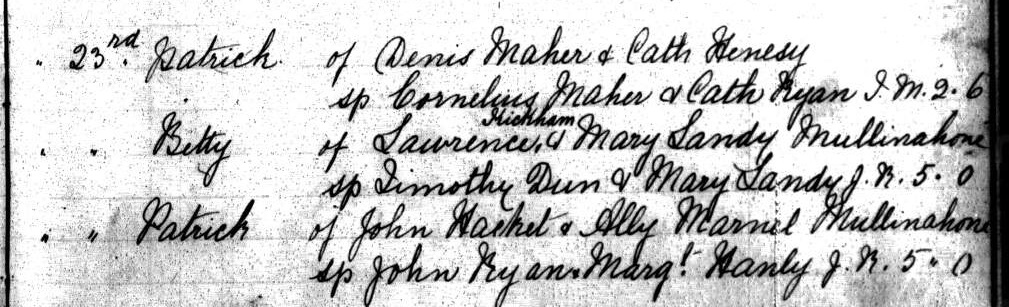 " 23rd. Patrick. of Denis Maher & Cath Henesy
sp Cornelius Maher & Cath Ryan J. M. 2. 6
" " Betty of Lawrence Kickham & Mary Landy Mullinahone
sp Timothy Dun & Mary Landy J. R. 5. 0
" " Patrick of John Hacket & Ally Marnel Mullinahone
sp John Ryan & Margt. Hanly J. R. 5. 0